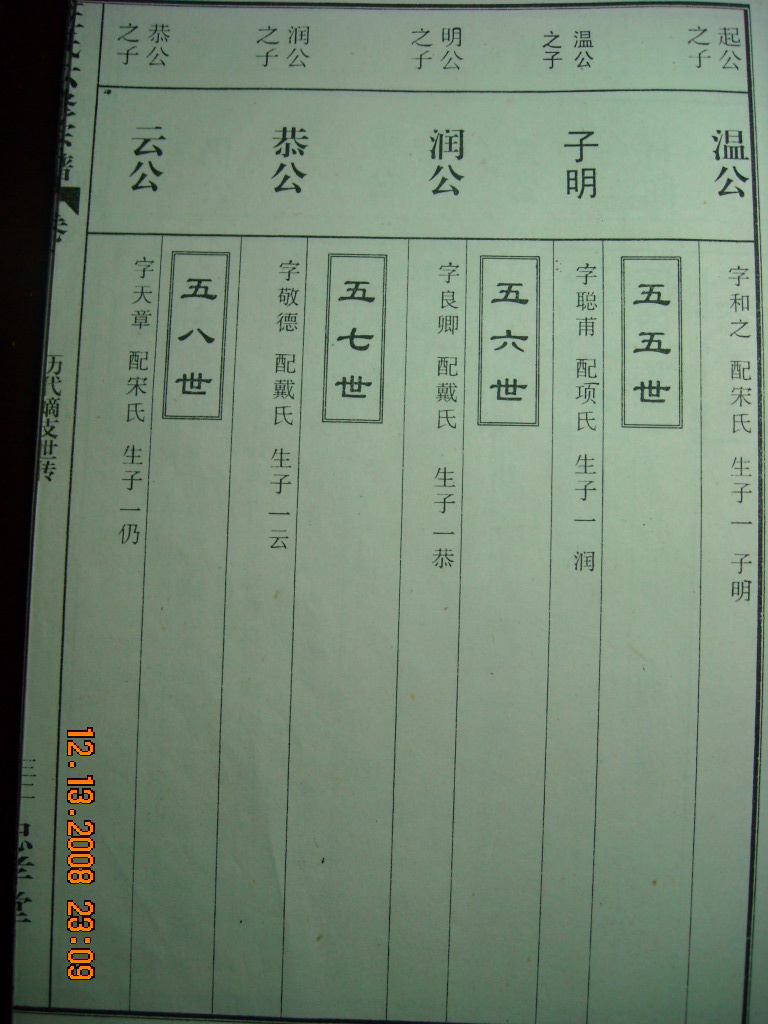 起公
之子
温公
字和之 配宋氏 生子一 子明
五五世
温公
之子
子明
字聪甫 配项氏 生子一 润
五六世
明公
之子
润公
字良卿 配戴氏 生子一恭
五七世
润公
之子
恭公
字敬德 配戴氏 生子一云
五八世
恭公
之子
云公
字天章 配宋氏 生子一仍
宗谱
历代嫡支世传
三二
思孝堂
12.13.2008 23:09